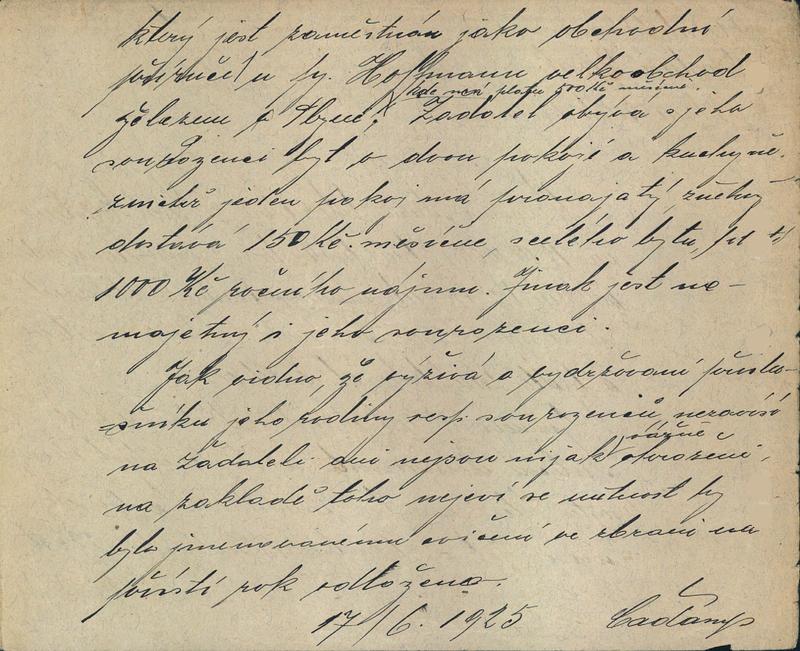 který jest zaměstnán jako obchodní
příručí u fy. Hoffmann velkoobchod
kde má platu 500 Kč měsíčně.
železem v Plzni. Žadatel obývá s jeho
sourozenci byt o dvou pokojí a kuchyně,
z nichž jeden pokoj má pronajatý, z něhož
dostává 150 Kč. měsíčně, z celého bytu platí
1000 Kč ročního nájmu. Jinak jest ne-
majetný i jeho sourozenci.
Jak vidno, že výživa a vydržování příslu-
šníků jeho rodiny resp. sourozenců, nezávisí
vážně
na žadateli ani nejsou nijak ohroženi,
na základě toho nejeví se nutnost by
bylo jmenovanému cvičení ve zbrani na
příští rok odloženo.
17/6. 1925